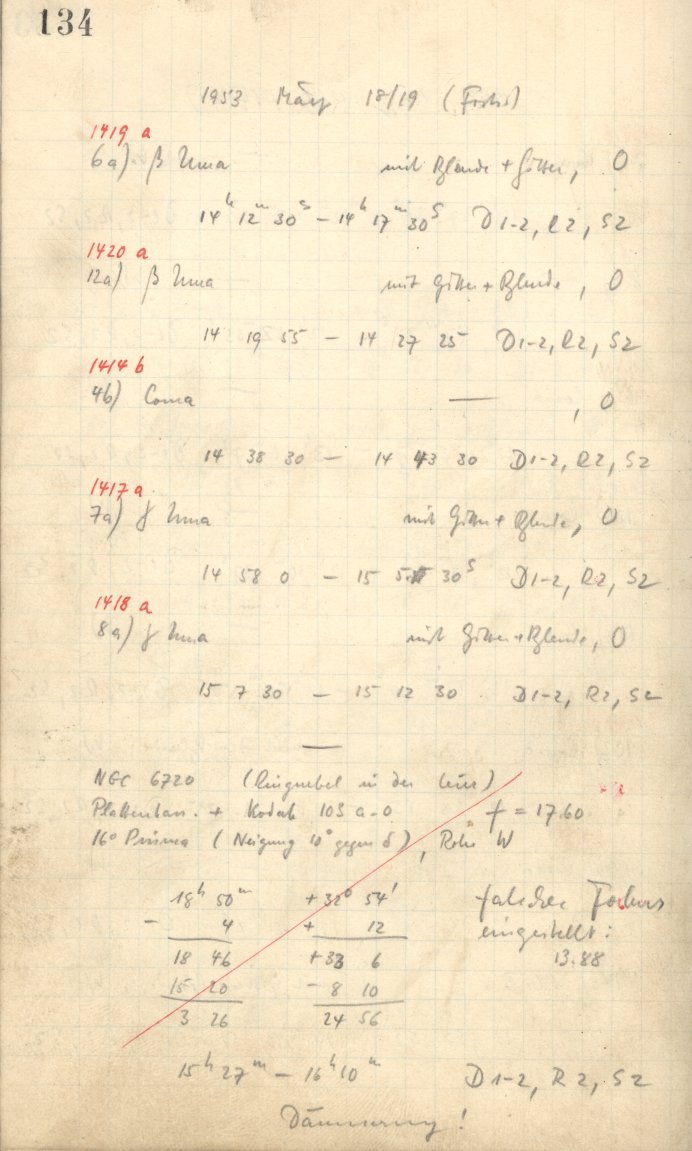 134
1953 März 18/19 ( )
1419 a
6a) β Uma mit Blende + Gitter, O
14h 12m 30s – 14h 17m 30s D1-2, R2, S2
1420 a
12a) β Uma mit Gitter + Blende, O
14 19 55 – 14 27 25 D1-2, R2, S2
1414 b
4b) Coma — , O
14 38 30 – 14 43 30 D1-2, R2, S2
1417 a
7a) γ Uma mit Gitter + Blende, O
14 58 0 – 15 30s D1-2, R2, S2
1418 a
8a) γ Uma mit Gitter + Blende, O
15 7 30 – 15 12 30 D1-2, R2, S2
—
NGC 6720 (Ringnebel in der Leier)
+ Kodak 103 a-O f = 17.60
16° Prisma (Neigung 10° gegen δ), Rohr W
18h 50m +32° 54' falscher Fokus
– 4 + 12 eingestellt:
18 46 +33 6 13.88
15 20 – 8 10
3 26 24 56
15h 27m – 16h 10m D1-2, R2, S2
Dämmerung!